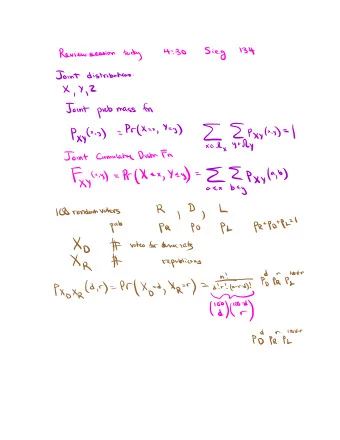 Review session today 4:30 Sieg 134
Joint distributions
X, Y, Z
Joint prob mass fn
P_XY(x,y) = Pr(X=x, Y=y) ∑_{x∈Ω_x} ∑_{y∈Ω_y} P_XY(x,y) = 1
Joint Cumulative Distr Fn
F_XY(x,y) = Pr(X≤x, Y≤y) = ∑_{a≤x} ∑_{b≤y} P_XY(a,b)
100 random voters R, D, L
prob P_R P_D P_L P_R+P_D+P_L=1
X_D # votes for democrats
X_R # republicans
P_{X_D X_R}(d,r) = Pr(X_D=d, X_R=r) = n!/(d! r! (n-r-d)!) P_D^d P_R^r P_L^{100-d-r}
(100 d)(100-d r)
P_D^d P_R^r P_L^{100-d-r}